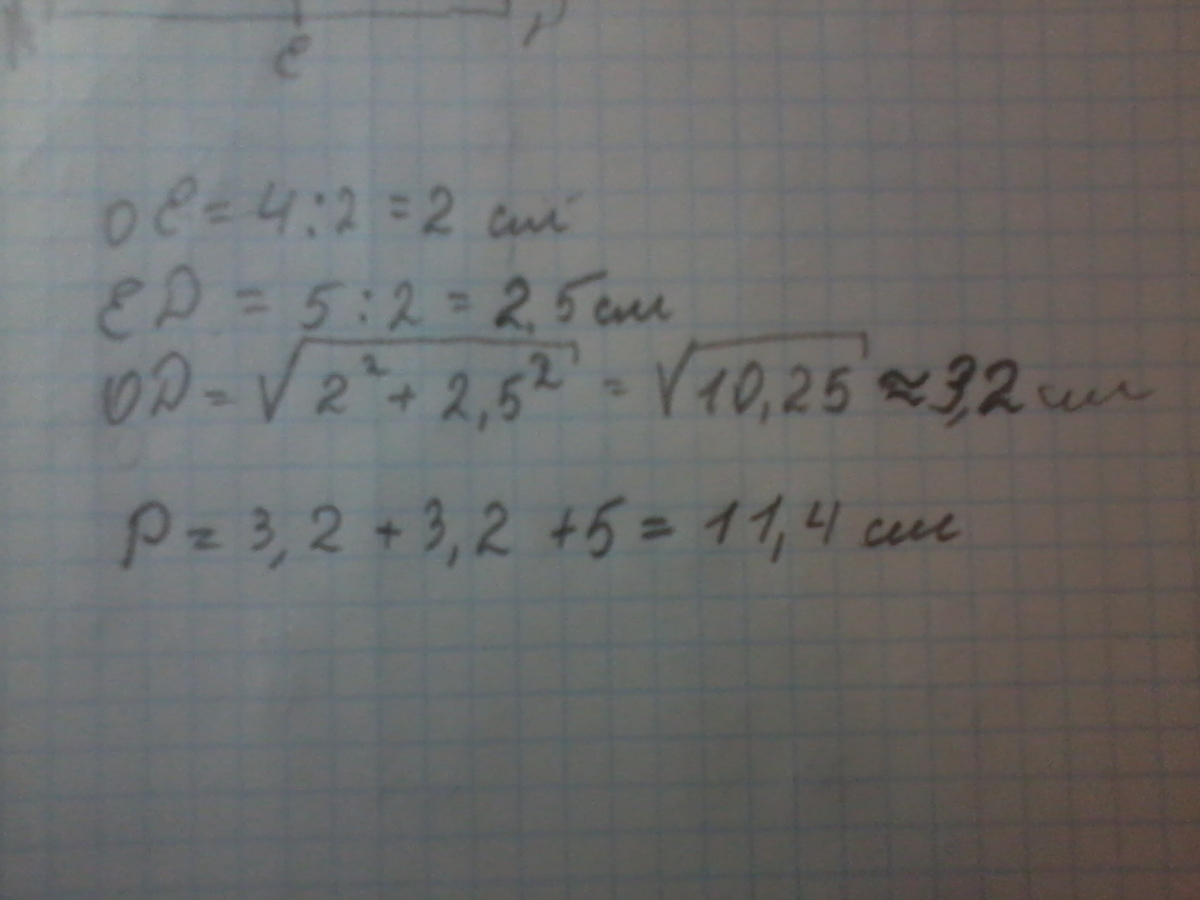 E
OE = 4 : 2 = 2 см
ED = 5 : 2 = 2,5 см
OD = √2² + 2,5² = √10,25 ≈ 3,2 см
P = 3,2 + 3,2 + 5 = 11,4 см